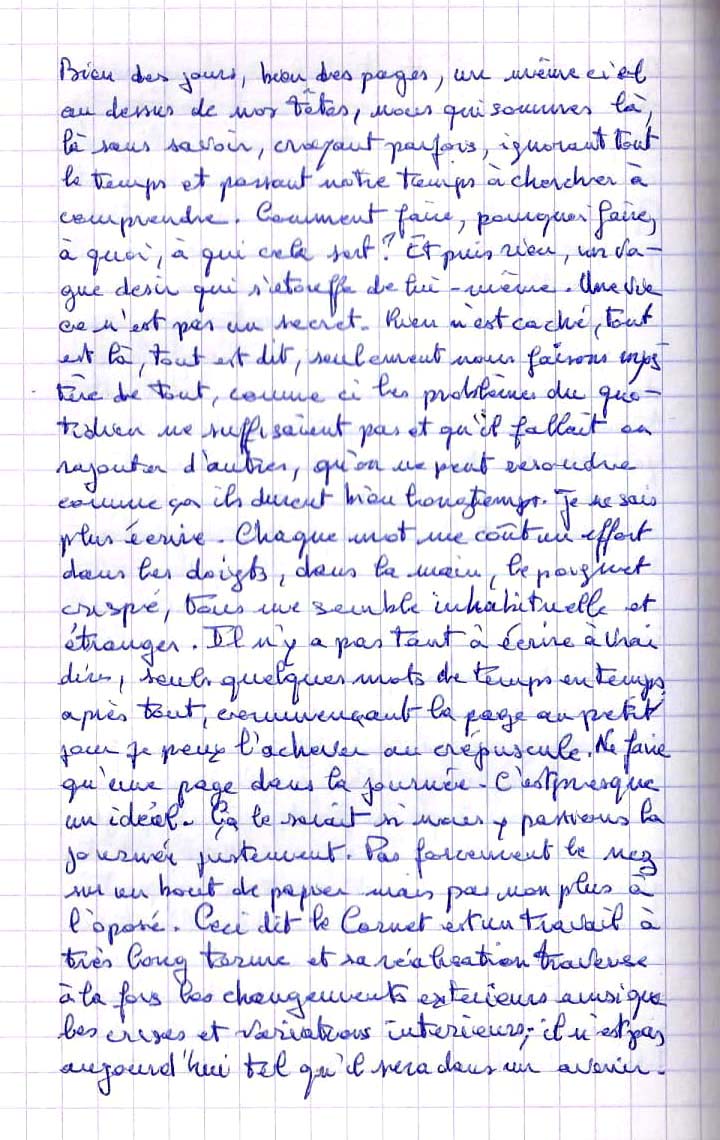 Bien des jours, bien des pages, un même ciel
au dessus de nos têtes, nous qui sommes là,
là sans savoir, croyant parfois, ignorant tout
le temps et passant notre temps à chercher à
comprendre. Comment faire, pourquoi faire,
à quoi, à qui cela sert ? Et puis rien, un va-
gue desir qui s'etouffe de lui-même. Une vie
ce n'est pas un secret. Rien n'est caché, tout
est là, tout est dit, seulement nous faisons mys
tère de tout, comme ci les problèmes du quo-
tidien ne suffisaient pas et qu'il fallait en
rajouter d'autres, qu'on ne peut resoudre
comme ça ils durent bien longtemps. Je ne sais
plus écrire. Chaque mot me coûte un effort
dans les doigts, dans la main, le poignet
crispé, tous me semble inhabituelle et
étranger. Il n'y a pas tant à écrire à vrai
dire, seuls quelques mots de temps en temps
après tout, commençant la page au petit
jour je peux l'achever au crépuscule. Ne faire
qu'une page dans la journée. C'est presque
un idéal. Ça le serait si nous y passions la
journée justement. Pas forcement le nez
sur un bout de papier mais pas non plus à
l'oposé. Ceci dit le Carnet est un travail à
très long terme et sa réalisation traverse
à la fois les changements exterieurs ainsi que
les crises et variations interieurs; il n'est pas
aujourd'hui tel qu'il sera dans un avenir.